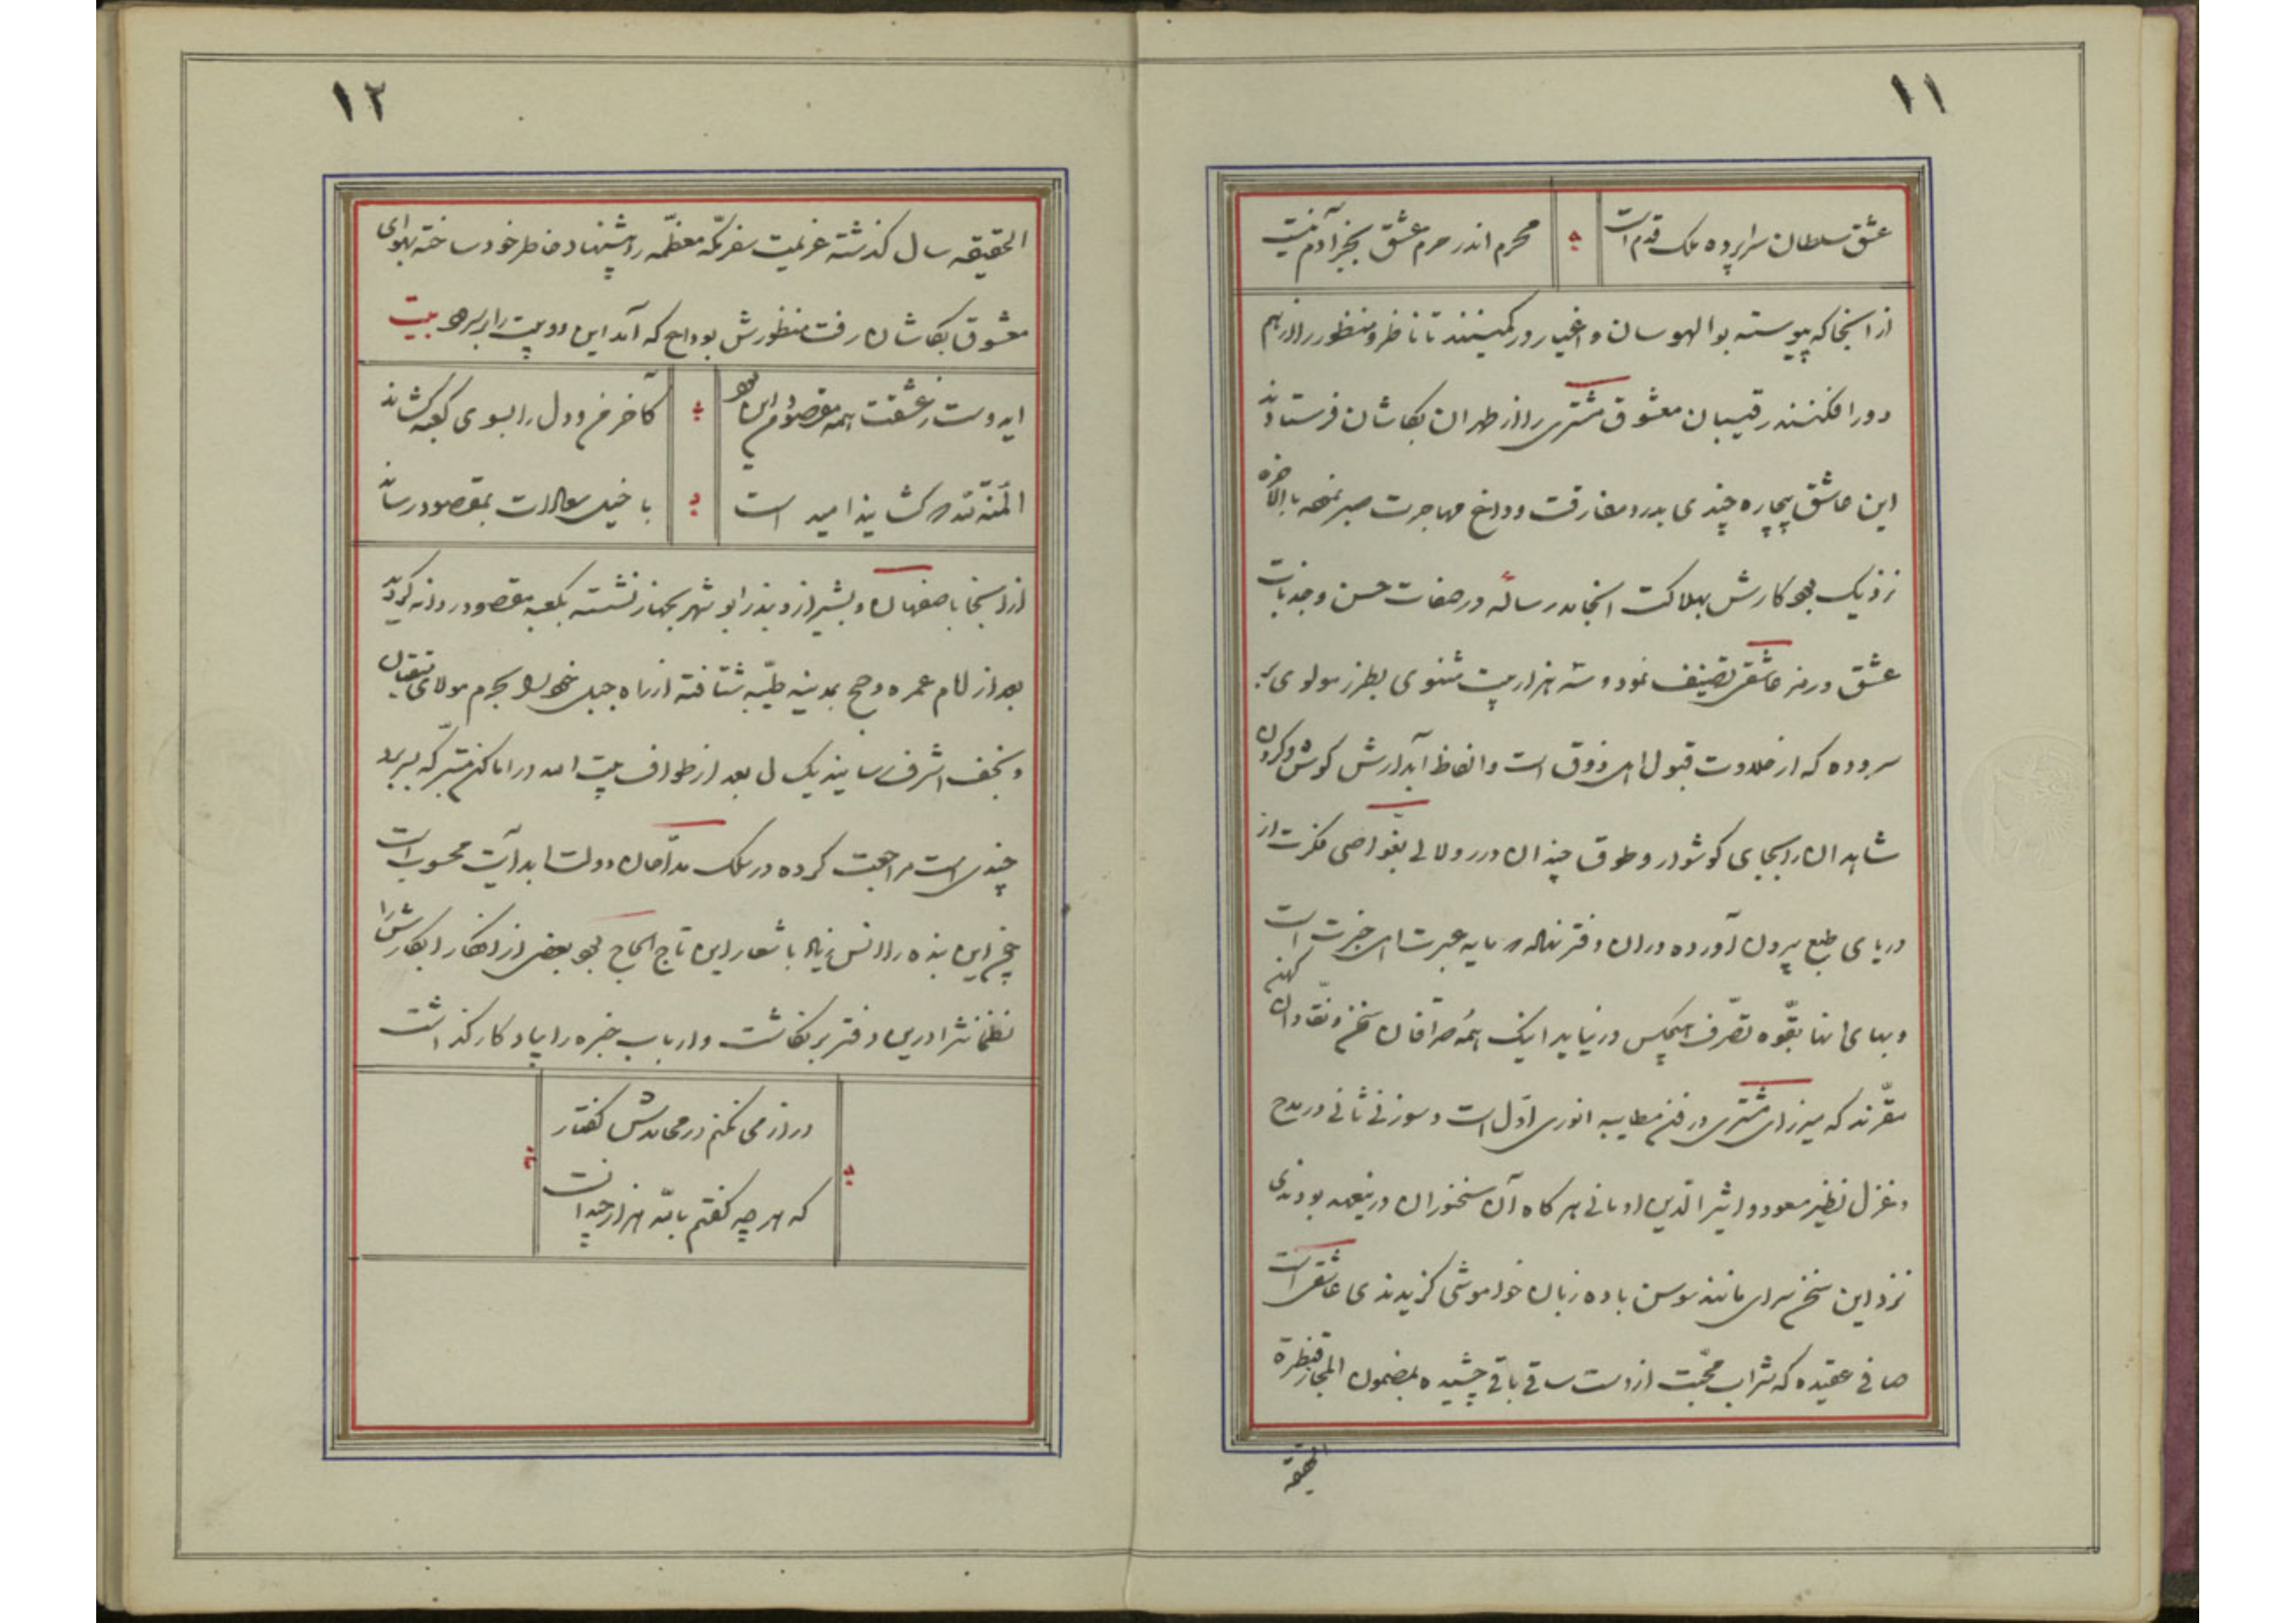 ۱۱
عشق سلطان سراپرده ملک قدم است
محرم اندر حرم عشق بجز آدم نیست
از اینجا که پیوسته بوالهوسان و اغیار در کمینند تا ناظر و منظور را از هم
دور افکنند رقیبان معشوق مشتری را از طهران بکاشان فرستادند
این عاشق بیچاره چندی بدرد مفارقت و داغ مهاجرت صبر نمود بالاخره
نزدیک بود کارش بهلاکت انجامد رساله در صفات حسن و جذبات
عشق و رمز عاشقی تصنیف نمود و سه هزار بیت مثنوی بطرز مولوی
سروده که از حلاوت قبول اهل ذوق است و الفاظ آبدارش گوش و گردن
شاهدان را بجای گوشوار و طوق چندان درر و لالی بغواصی فکرت از
دریای طبع بیرون آورده در آن دفتر نهاده مایه عبرت اهل خبرت است
و بهای انها بقوه تصرف هیچکس در نیاید اینک همه صرافان سخن و نقادان کهن
مقرند که میرزای مشتری در فن مطایبه انوری اول است و سوزنی ثانی در مدح
و غزل نظیر مسعود و اثیر الدین اومانی هر گاه آن سخنوران در ینعهد بودندی
نزد این سخن سرای مانند سوسن با ده زبان خواموشی گزیدندی عاشقی است
صافی عقیده که شراب محبت از دست ساقی باقی چشیده بمضمون المجاز قنطرة
الحقیقه
۱۲
الحقیقه سال گذشته عزیمت سفر مکه معظمه را پیشنهاد خاطر خود ساخته بهوای
معشوق بکاشان رفت منظورش بوداع که آمد این دو بیت را بر سرود بیت
ایدوست ز عشقت همه مقصودم این بود
کاخر من و دل را بسوی کعبه کشاند
المنة لله که کشاینده امید است
با خیل سعادات بمقصود رساند
از اینجا باصفهان و بشیراز و بندر ابوشهر بجهاز نشسته بکعبه مقصود روانه گردید
بعد از اتمام عمره و حج بمدینه طیبه شتافته از راه جبل خود را بحرم مولای متقیان
و نجف اشرف رسانید یک سال بعد از طواف بیت الله در اماکن متبرکه بسر برد
چندی است مراجعت کرده در سلک مداحان دولت ابد آیت محسوب است
چون این بنده را انس زیاد با شعار این تاج الحاج بود بعضی از افکار ابکارش را
نظما نثرا درین دفتر بر نگاشت و ارباب خبره را یادگار گذاشت
دراز می نکنم در محامدش گفتار
که هر چه گفتم بالله هزار چندانست